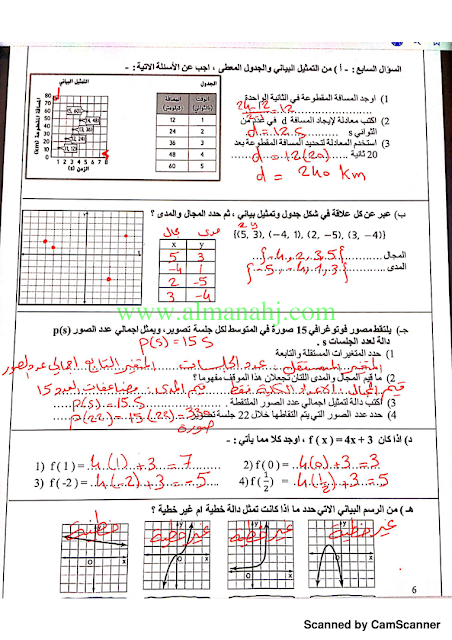 السؤال السابع: - أ) من التمثيل البياني والجدول المعطى ، اجب عن الأسئلة الاتية: -
1) اوجد المسافة المقطوعة في الثانية الواحدة
= 12
2) اكتب معادلة لإيجاد المسافة d في عدد من
الثواني s d = 12.s
3) استخدم المعادلة لتحديد المسافة المقطوعة بعد
20 ثانية d = 12(20)
d = 240 km
الجدول
الوقت (بالثواني) المسافة
1 12
2 24
3 36
4 48
5 60
التمثيل البياني
المسافة المقطوعة (km)
80
70
60
50
40
30
20
10
0
1 2 3 4 5 6 7 8
الزمن (s)
ب) عبر عن كل علاقة في شكل جدول وتمثيل بياني ، ثم حدد المجال والمدى ؟
x y
{(5, 3), (-4, 1), (2, -5), (3, -4)}
المجال {-4, 2, 3, 5}
المدى {-5, -4, 1, 3}
مجال مدى
x y
5 3
-4 1
2 -5
3 -4
www.almanahj.com
جـ) يلتقط مصور فوتوغرافي 15 صورة في المتوسط لكل جلسة تصوير، ويمثل اجمالي عدد الصور p(s)
دالة لعدد الجلسات s .
P(s) = 15 S
1) حدد المتغيرات المستقلة والتابعة
المتغير المستقل : عدد الجلسات المتغير التابع اجمالي عدد الصور
2) ما قيم المجال والمدى اللتان تجعلان هذا الموقف مفهوما؟
قيم المجال : الأعداد الكلية فقط قيم المدى : مضاعفات العدد 15
3) اكتب دالة لتمثيل اجمالي عدد الصور الملتقطة P(s) = 15.S
4) حدد عدد الصور التي يتم التقاطها خلال 22 جلسة تصوير P(22) = 15.(22) = 330
صورة
د) اذا كان f ( x ) = 4x + 3 ، اوجد كلا مما يأتي: -
1) f ( 1 ) = 4(1) + 3 = 7
2) f ( 0 ) = 4(0) + 3 = 3
3) f ( -2 ) = 4(-2) + 3 = -5
4) f( 1/2 ) = 4(1/2) + 3 = 5
هـ) من الرسم البياني الاتي حدد ما اذا كانت تمثل دالة خطية ام غير خطية ؟
خطية
غير خطية
غير خطية
غير خطية
6
Scanned by CamScanner